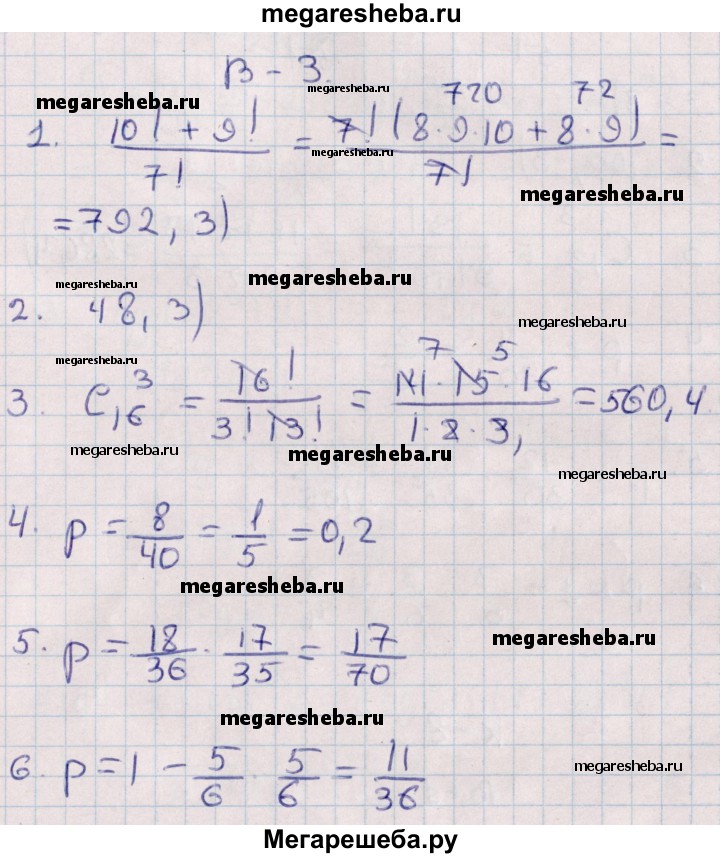 megaresheba.ru
В - 3.
megaresheba.ru
megaresheba.ru
720 72
1. (10! + 9!)/7! = 7!(8·9·10 + 8·9)/7! =
megaresheba.ru
megaresheba.ru
= 792, 3)
megaresheba.ru
megaresheba.ru
2. 48, 3)
megaresheba.ru
megaresheba.ru
7 5
3. C₁₆³ = 16!/(3! 13!) = (14·15·16)/(1·2·3) = 560, 4
megaresheba.ru
megaresheba.ru
megaresheba.ru
4. p = 8/40 = 1/5 = 0,2
megaresheba.ru
5. p = 18/36 · 17/35 = 17/70
megaresheba.ru
megaresheba.ru
6. p = 1 - 5/6 · 5/6 = 11/36
megaresheba.ru
Мегарешеба.ру